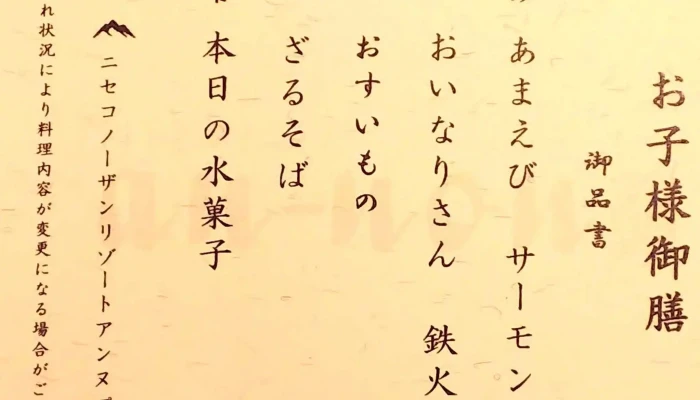 お子様御膳
御品書
あまえび サーモン
おいなりさん 鉄火
おすいもの
ざるそば
本日の水菓子
ニセコノーザンリゾートアンヌ
れ状況により料理内容が変更になる場合がご